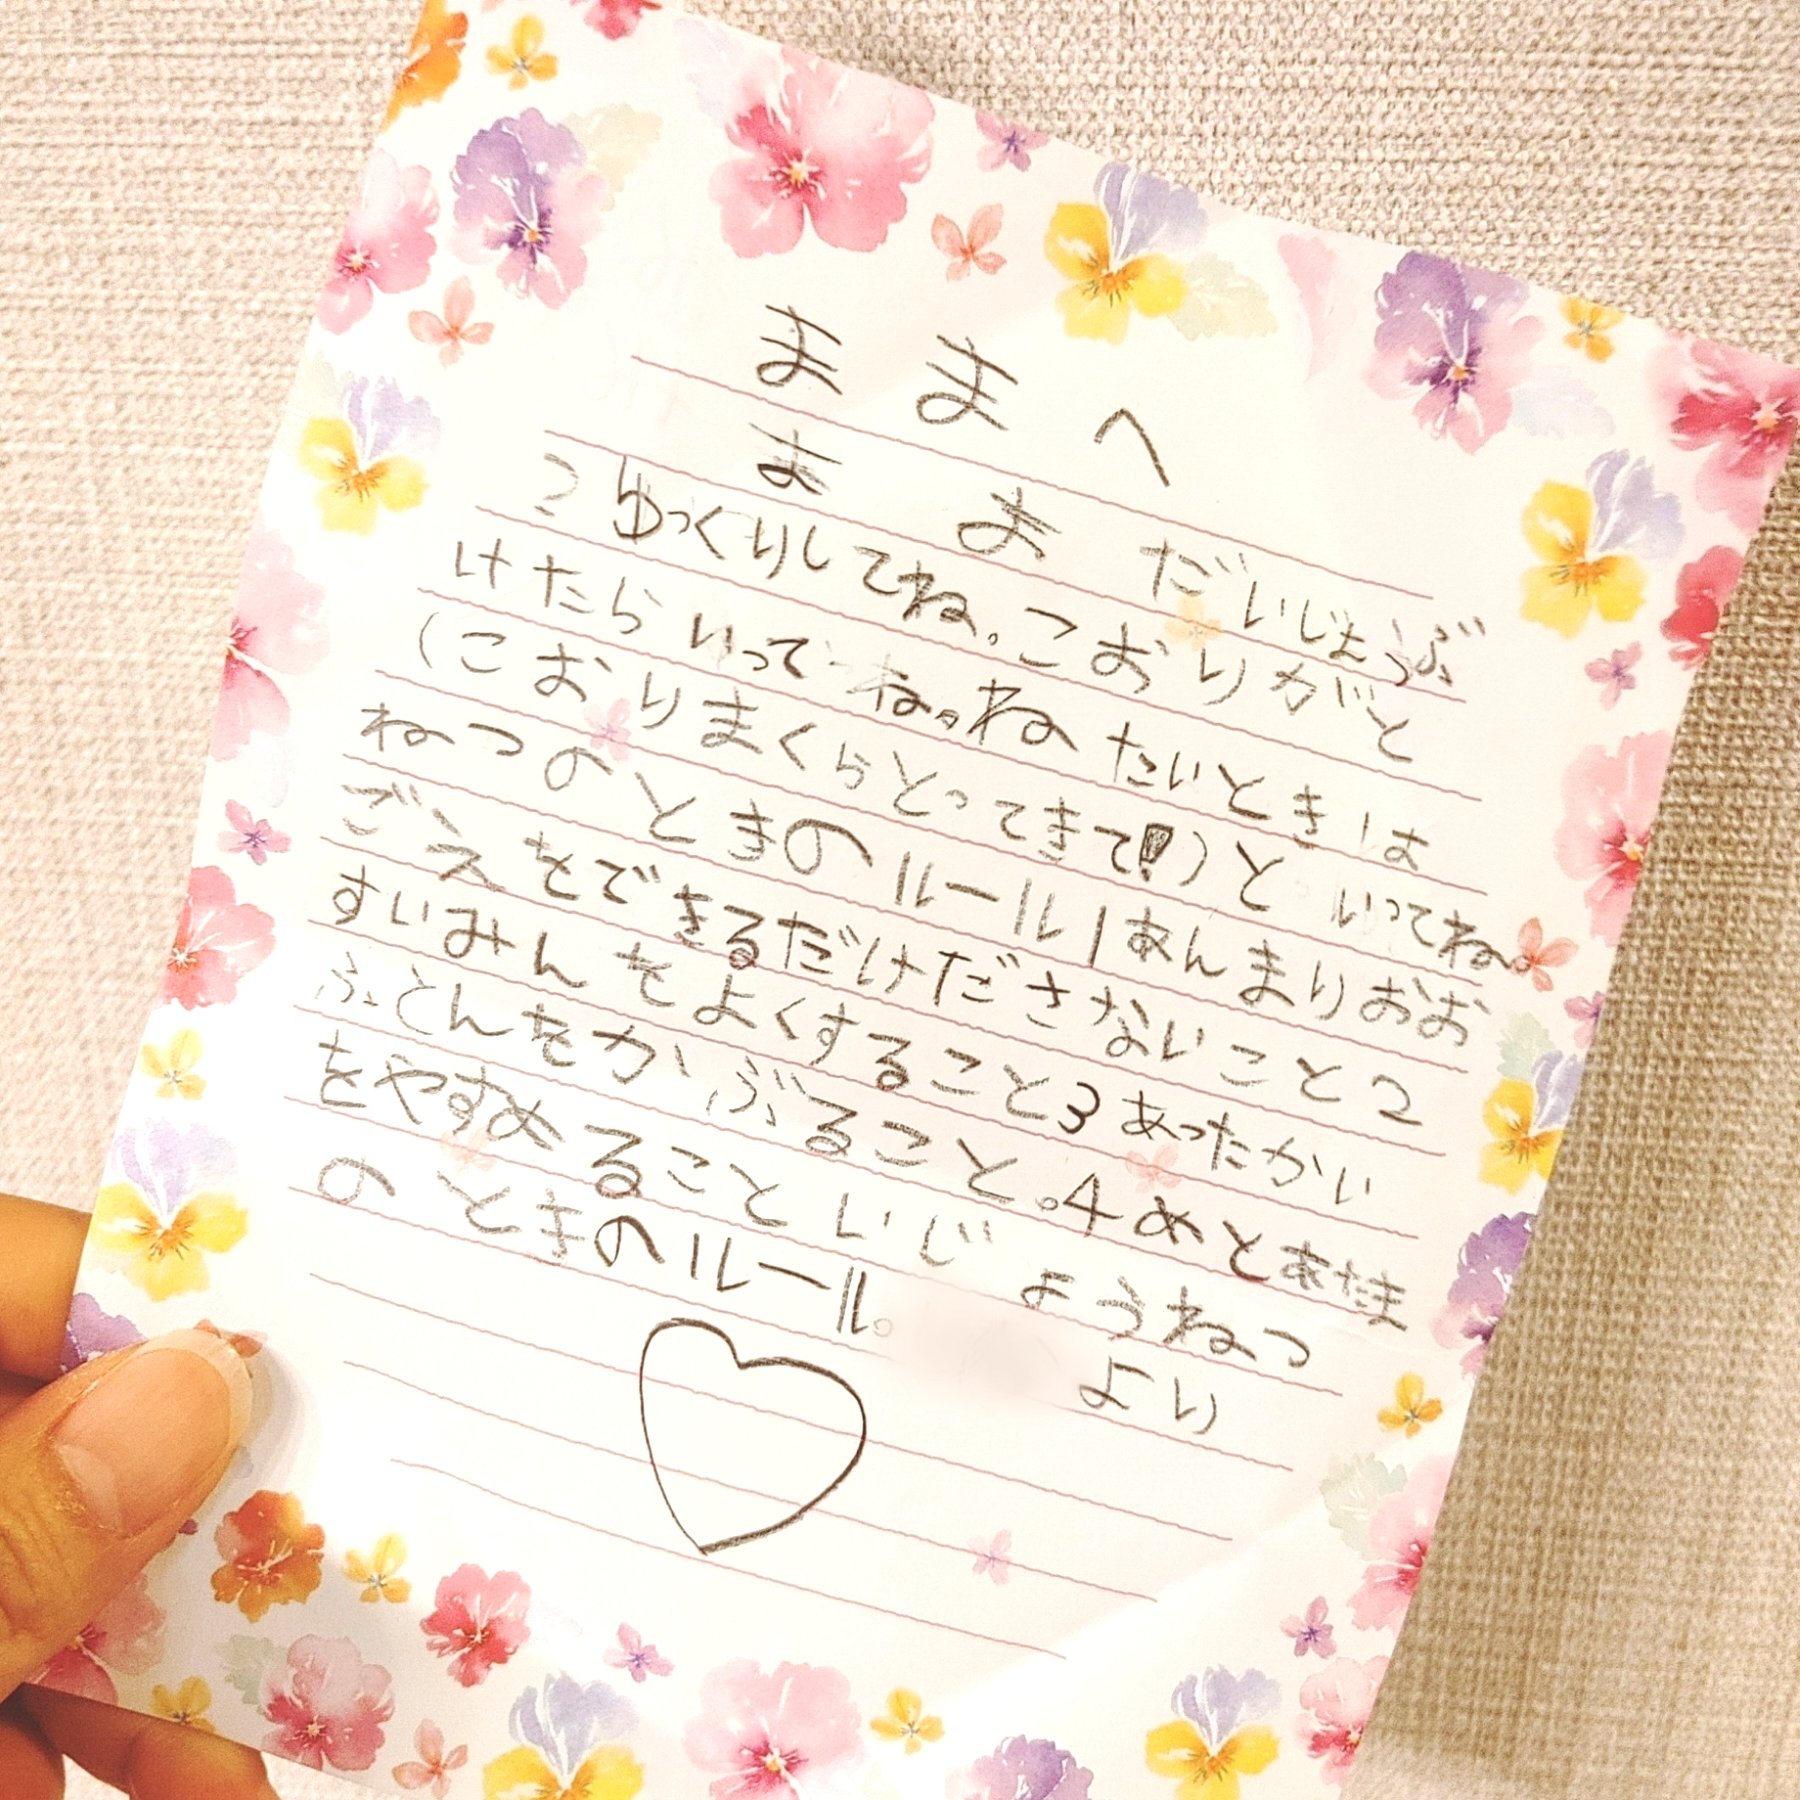 ままへ
まま だいじょうぶ
?ゆっくりしてね。こおりがと
けたらいってね。ねたいときは
(こおりまくらとってきて!)といってね。
ねつのときのルール1あんまりおお
ごえをできるだけださないこと2
すいみんをよくすること3あったかい
ふとんをかぶること。4めとあたま
をやすめること いじょうねつ
のときのルール。
より